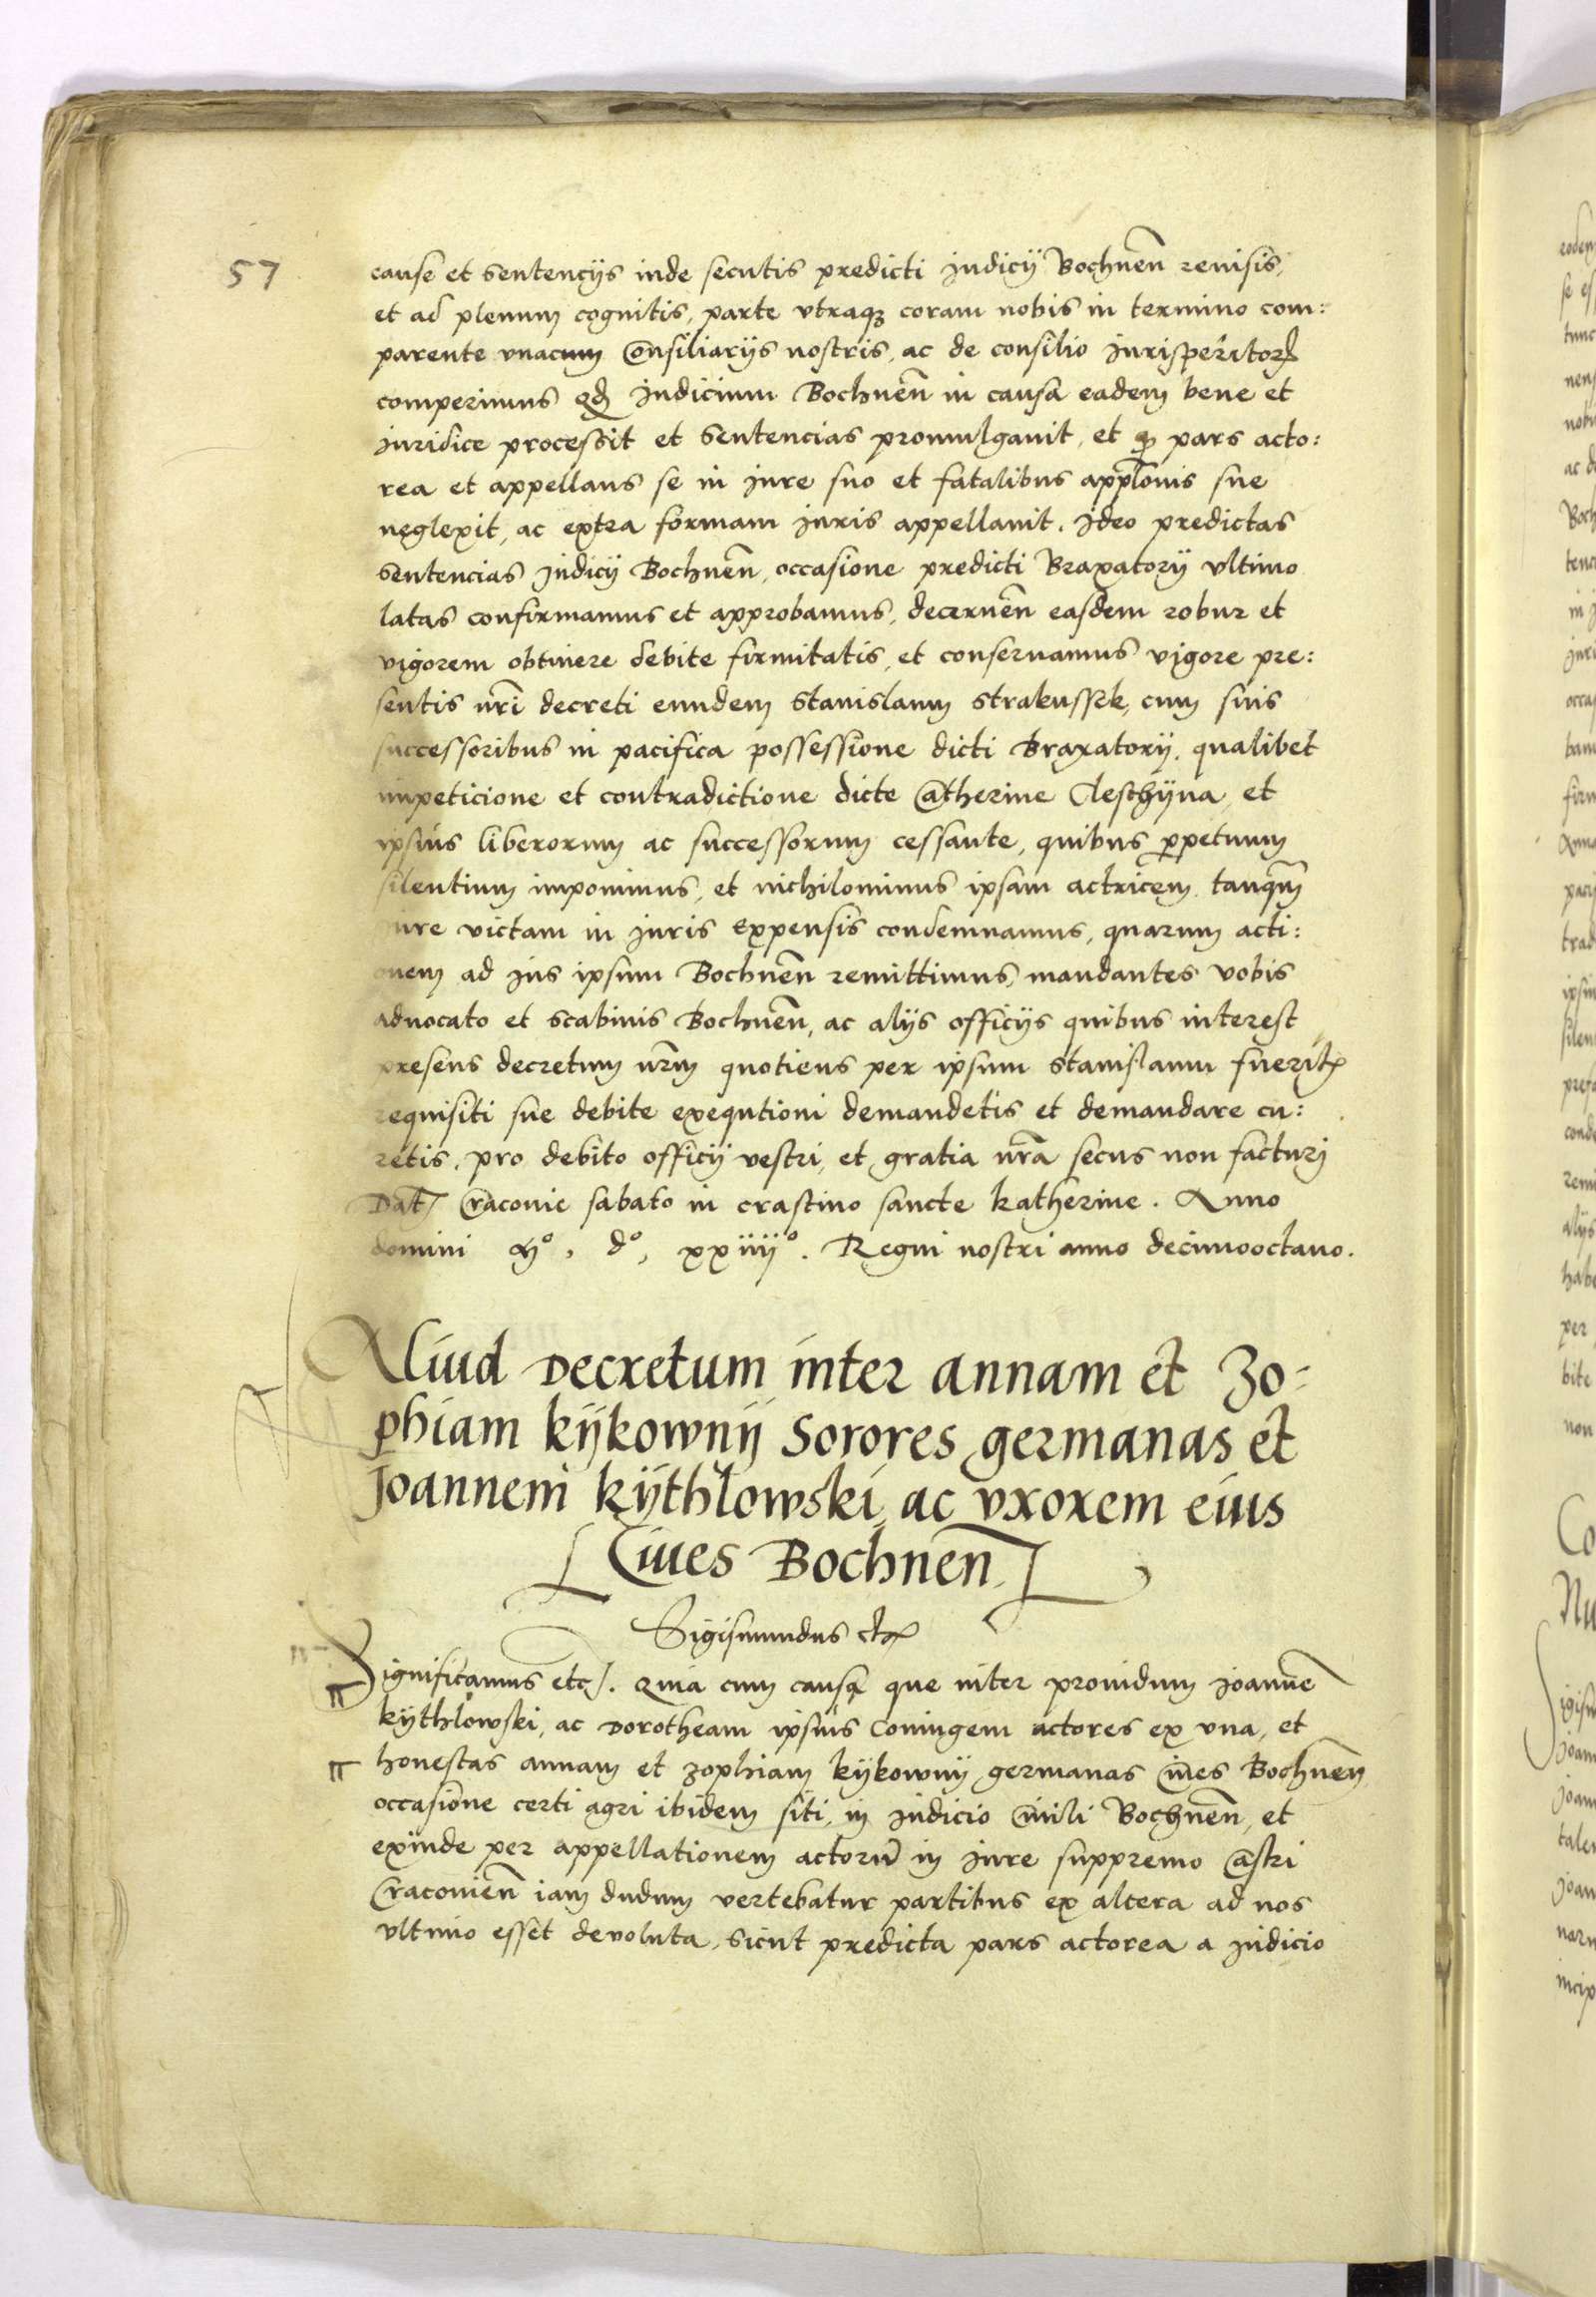 57
cause et sentencijs inde secutis predicti Judicij Bochnen̄ reuisis,
et ad plenum cognitis, parte vtraqꝫ coram nobis in termino com:
parente vnacum Consiliarijs nostris, ac de consilio Jurisperitorꝝ
comperimus qđ Judicium Bochnen̄ in causa eadem bene et
Juridice processit et sentencias promulgauit, et qꝫ pars acto:
rea et appellans se in Jure suo et fatalibus appl̄onis sue
neglexit, ac extra formam Juris appellauit. Ideo predictas
sentencias Judicij Bochnen̄, occasione predicti Braxatorij vltimo
latas confirmamus et approbamus, decernen̄ easdem robur et
vigorem obtinere debite firmitatis, et conseruamus vigore pre:
sentis nr̄i decreti eundem Stanislaum Strakussek, cum suis
successoribus in pacifica possessione dicti Braxatorij, qualibet
impeticione et contradictione dicte Catherine Cleschÿna et
ipsius liberorum ac successorum cessante, quibus ꝑpetuum
silentium imponimus, et nichilominus ipsam actricem tanqᷓm
iure victam in Juris Expensis condemnamus, quarum acti:
onem ad Jus ipsum Bochnen̄ remittimus, mandantes vobis
aduocato et scabinis Bochnen̄, ac alijs officijs quibus interest
presens decretum nr̄m quotiens per ipsum Stanislaum fueritꝭ
requisiti sue debite exequtioni demandetis et demandare cu:
retis, pro debito officij vestri, et gratia nr̄a secus non facturi
Datꝭ Cracouie sabato in crastino sancte katherine. Anno
domini Mº, dº, xxiiijº. Regni nostri anno decimooctauo.
Aliud Decretum inter annam et Zo-
phiam kÿkownÿ Sorores germanas et
Joannem kÿthlowski, ac vxorem eius
Ciues Bochnen̄.
Sigismundus etcꝭ
Significamus etcꝭ. Quia cum causa que inter prouidum Joannē
kÿthlowski, ac Dorotheam ipsius Coniugem actores ex vna, et
honestas annam et zophiam kÿkownÿ germanas Ciues Bochnen̄
occasione certi agri ibidem siti, in Judicio Ciuili Bochnen̄, et
exinde per appellationem actorū in Jure suppremo Castri
Cracouien̄ iam dudum vertebatur partibus ex altera ad nos
vltimo esset deuoluta, sicut predicta pars actorea a Judicio